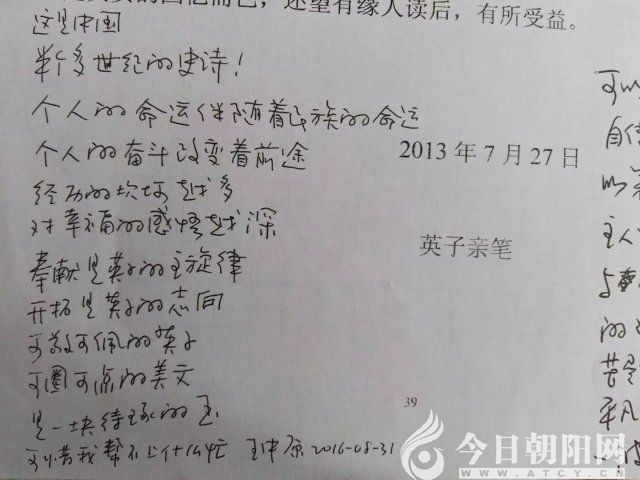 的回忆而已，还望有缘人读后，有所受益。
这是中国
半个多世纪的史诗！
个人的命运伴随着民族的命运
个人的奋斗改变着前途
2013 年 7 月 27 日
经历的坎坷越多
对幸福的感悟越深
英子亲笔
奉献是英子的主旋律
开拓是英子的志向
可敬可佩的英子
可圈可点的美文
是一块待琢的玉
可惜我帮不上什么忙 王中原 2016-08-31
39
可以
自传
以第
主人
的
平凡
今日朝阳网
WWW.ATCY.CN